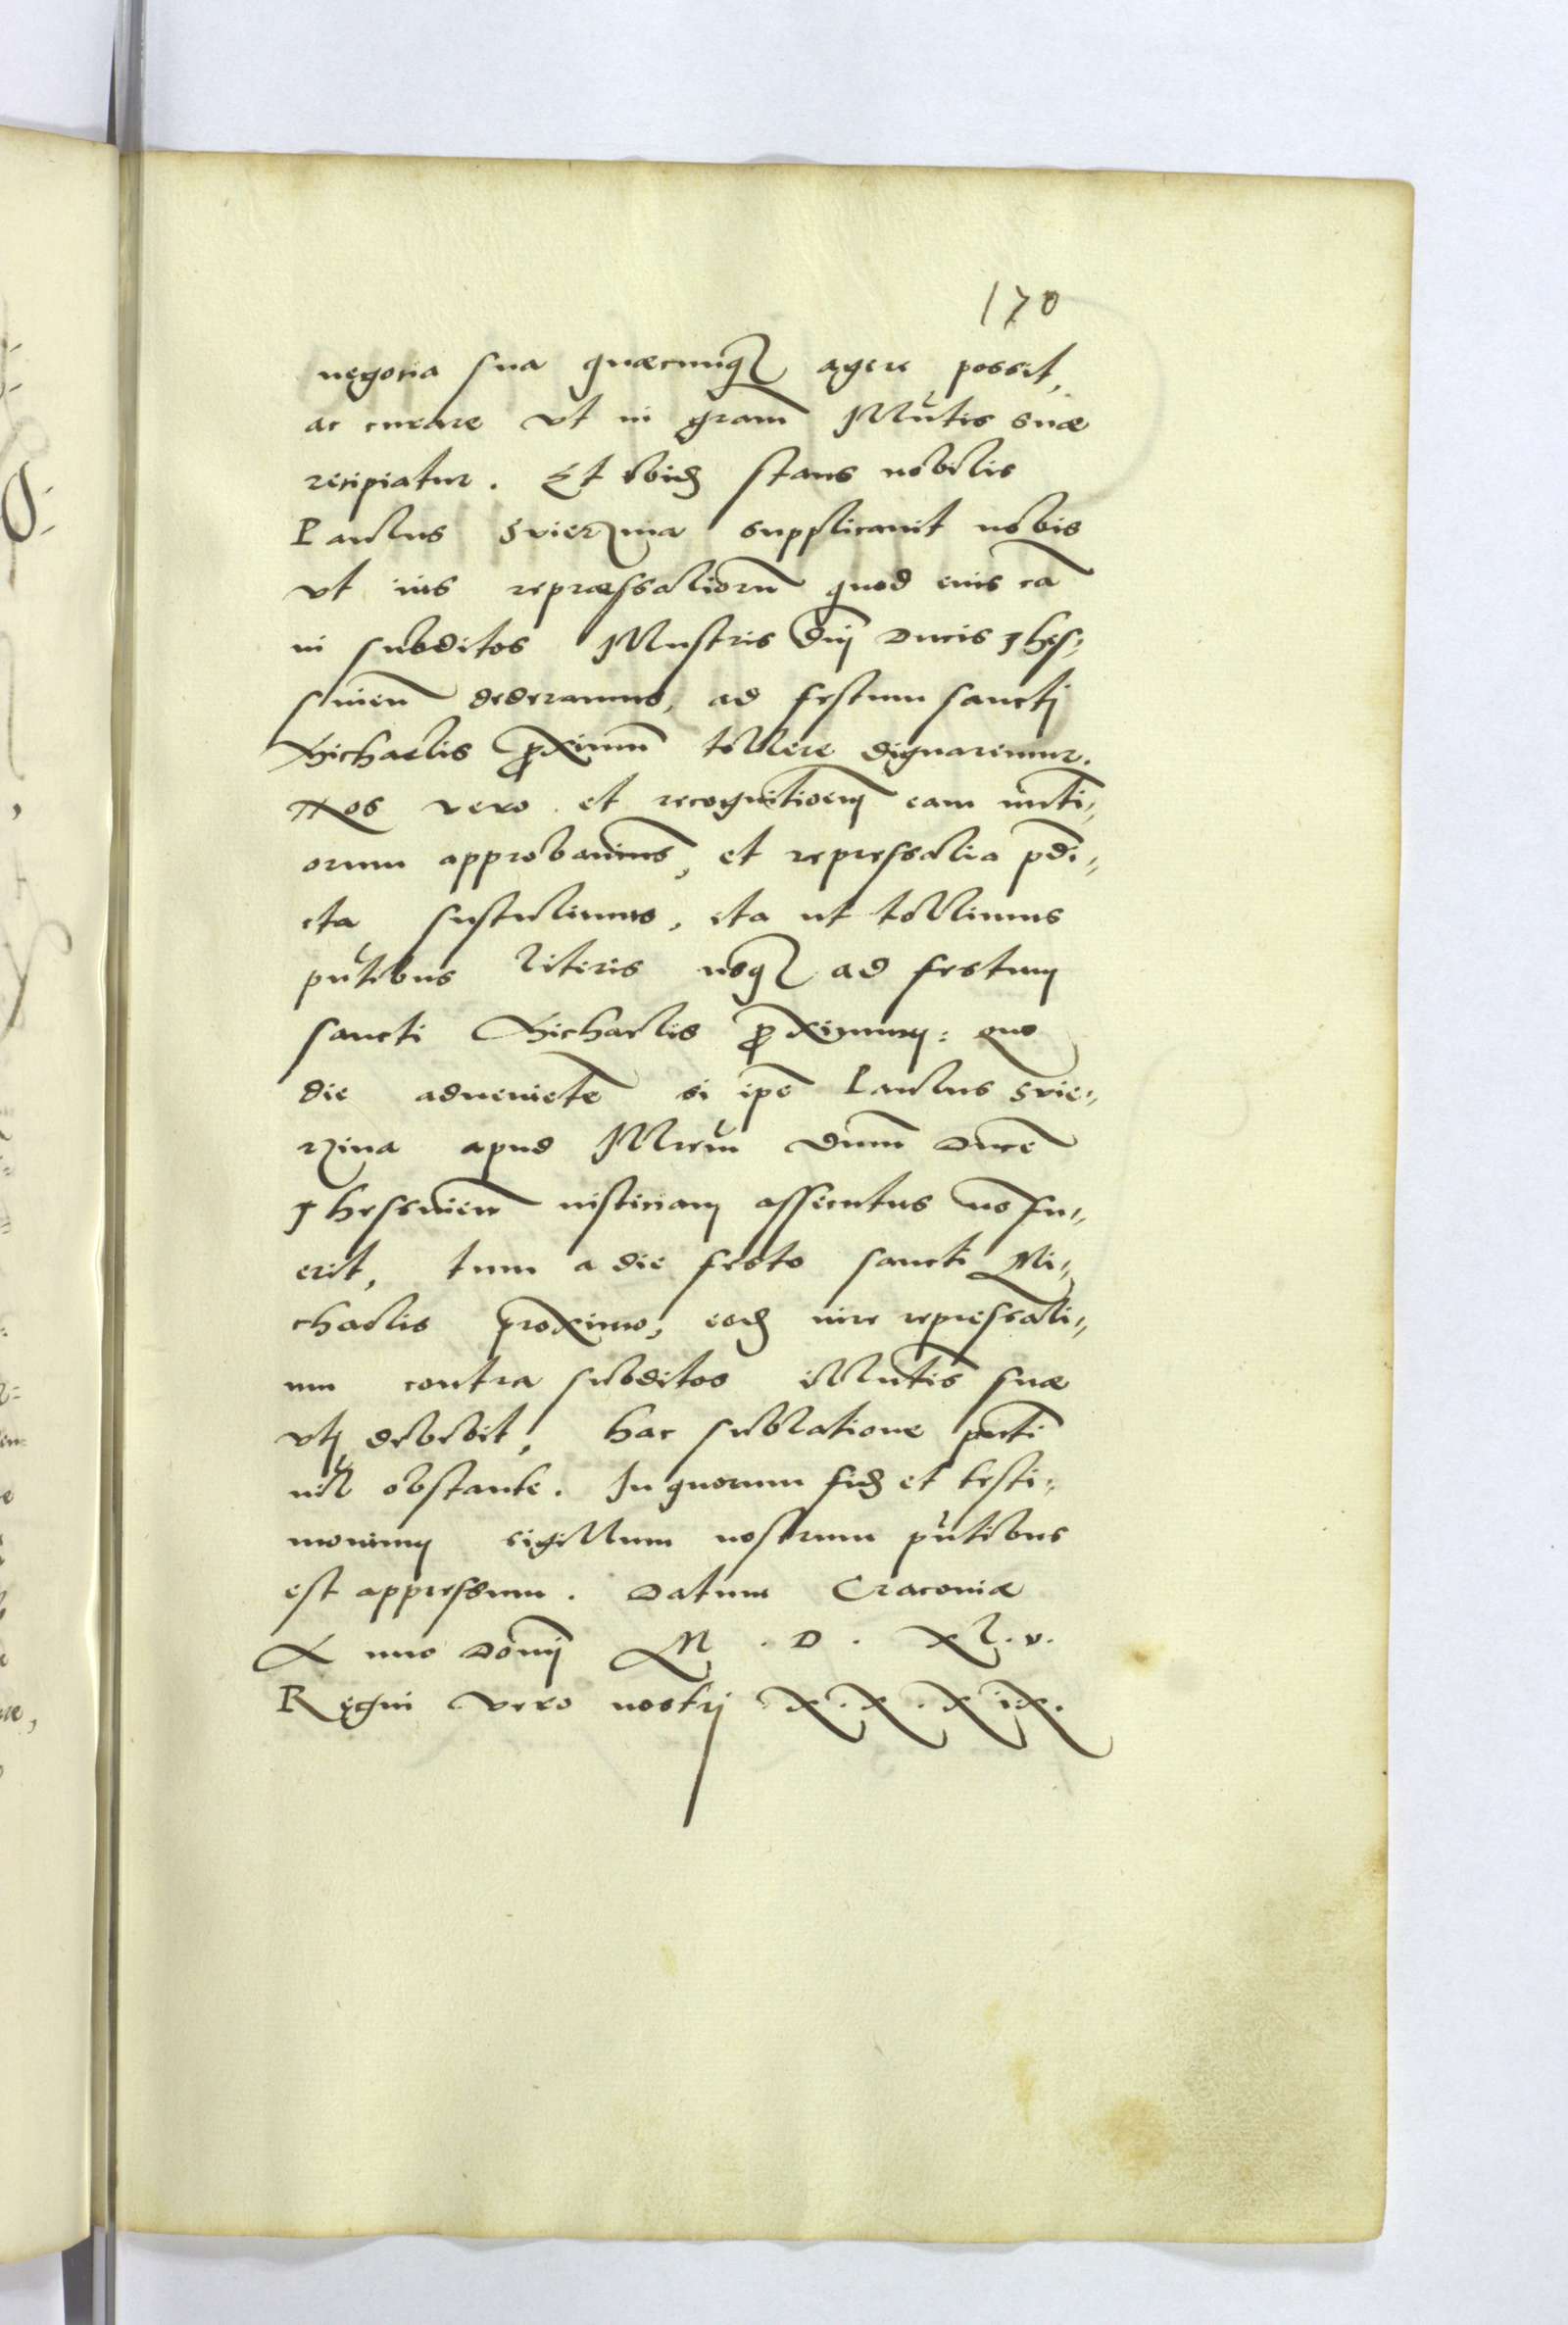 170
negotia sua quæcunq̃ agere possit,
ac curare vt in gram̃ Illu͂tis suæ
recipiatur. Et ibid̃ stans nobilis
Paulus Svierzina supplicauit nobis
vt ius repræssaliorũ quod eius cã
in subditos Illustris Dñi Ducis Thes⸗
sinień dederamus, ad festum sancti
Michaelis ꝓximũ tollere dignaremur.
Nos vero et recognitionem eam nũcti⸗
orum approbauimus, et repressalia p̃di⸗
cta sustulimus, ita ut tollimus
pñtibus literis usq̃ ad festum
sancti Michaelis ꝓximum: quo
die adueniẽte si ipse Paulus Svie⸗
rzina apud Illrem̃ Dnum̃ Ducẽ
Thessinień iusticiam assecutus nõ fu⸗
erit, tum a die festo sancti Mi⸗
chaelis proximo, eod̃ iure repressali⸗
um contra subditos illũtis suæ
vti debebit, hac sublatione pñti
nil̃ obstante. In quorum fid̃ et testi⸗
monium sigillum nostrum pñtibus
est appressum. Datum Cracoviæ
Anno Domĩ M . D . XL . v.
Regni vero nostri X . X . X ix.